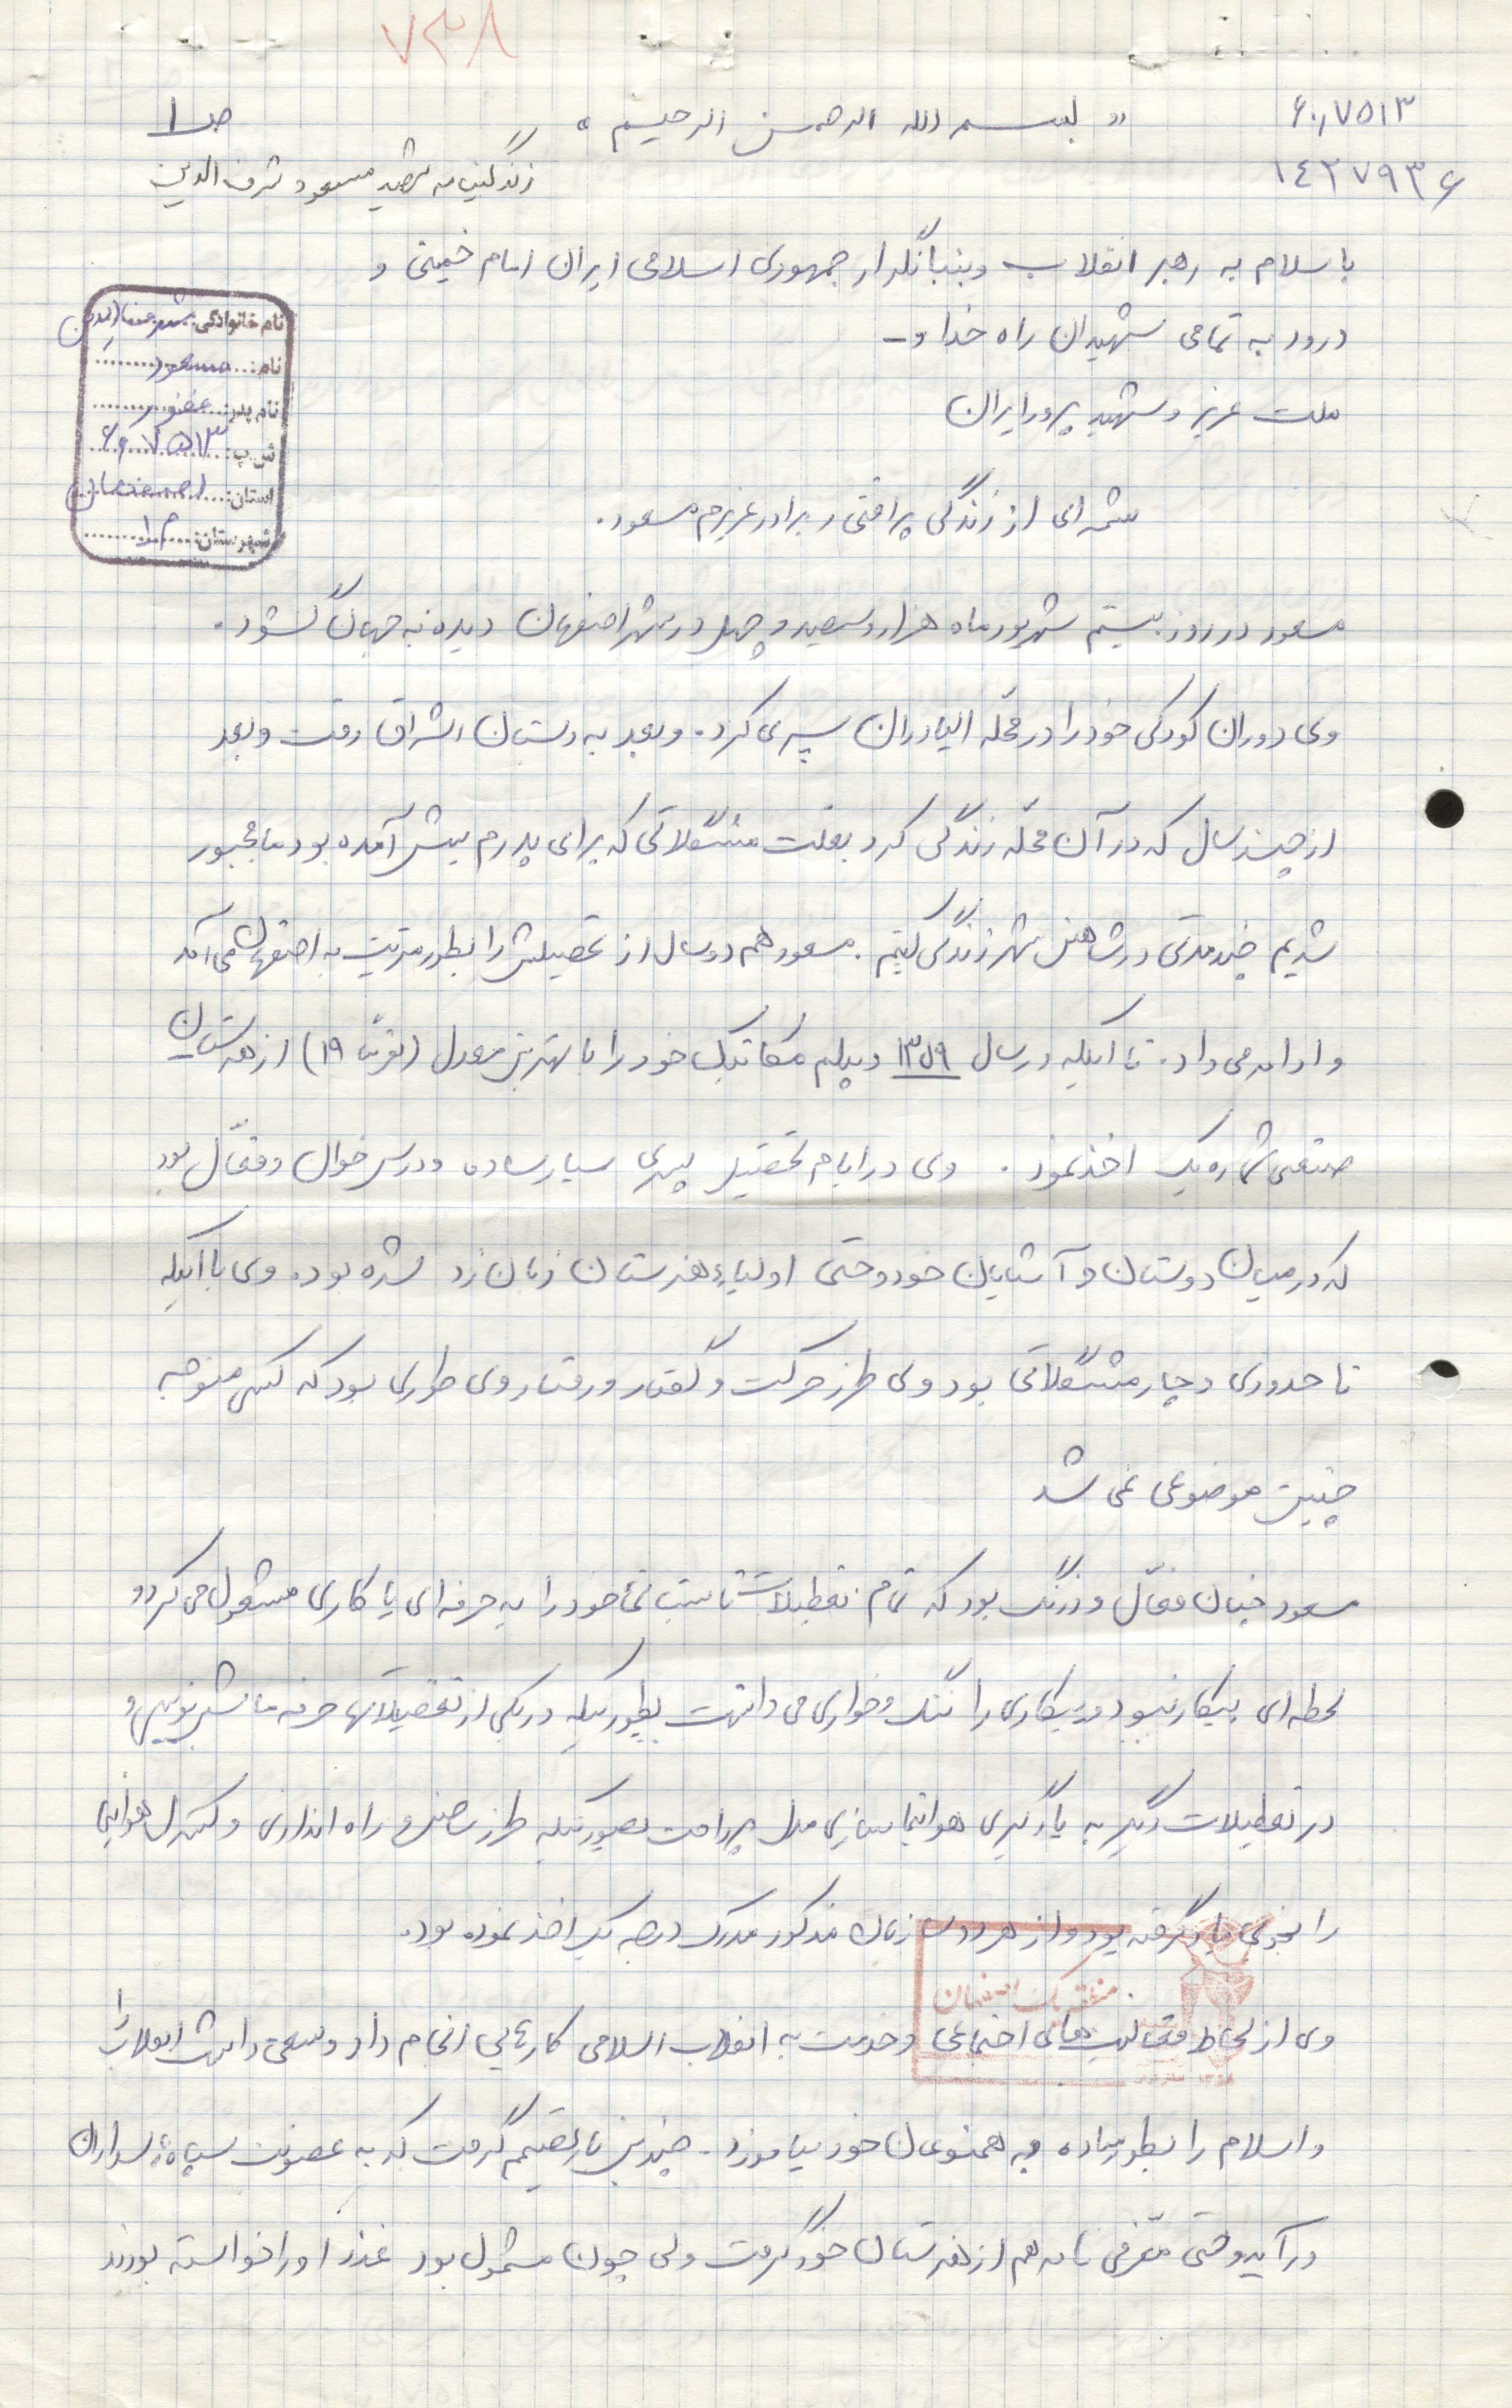 ۷۳۸
۶۰۸۷۵۱۳
« بسم الله الرحمن الرحیم »
ص ۱
۱۴۲۷۹۳۶
زندگینامه شهید مسعود شرف الدین
با سلام به رهبر انقلاب و بنیانگذار جمهوری اسلامی ایران امام خمینی و
درود به تمامی شهیدان راه خدا و -
ملت عزیز و شهید پرور ایران
نام خانوادگی: شرف الدین
نام: مسعود
نام پدر: غضنفر
ش.پ: ۶۰۸۷۵۱۳
استان: اصفهان
شهرستان: ۱۲
شمه ای از زندگی پر افتخار برادر عزیزم مسعود.
مسعود در روز بیستم شهریور ماه هزار و سیصد و چهل در شهر اصفهان دیده به جهان گشود.
وی دوران کودکی خود را در محله الیادران سپری کرد. و بعد به دبستان اشراق رفت و بعد
از چند سال که در آن محله زندگی کرد بعلت مشکلاتی که برای پدرم پیش آمده بود ما مجبور
شدیم چند مدتی در شاهین شهر زندگی کنیم. مسعود هم دو سال از تحصیلش را بطور مرتب به اصفهان می آمد
و ادامه می داد. تا اینکه در سال ۱۳۵۹ دیپلم مکانیک خود را با بهترین معدل (تقریباً ۱۹) از هنرستان
صنعتی شماره یک اخذ نمود. وی در ایام تحصیل پسری بسیار ساده و درس خوان و فعّال بود
که در میان دوستان و آشنایان خود و حتی اولیاء هنرستان زبان زد شده بود. وی با اینکه
تا حدودی دچار مشکلاتی بود ولی طرز حرکت و گفتار و رفتار وی طوری بود که کسی متوجه
چنین موضوعی نمی شد
مسعود چنان فعّال و زرنگ بود که تمام تعطیلات تابستانی خود را به حرفه ای یا کاری مشغول می کرد و
لحظه ای بیکار نبود و بیکاری را ننگ و خواری می دانست بطوریکه در یکی از تعطیلاتها حرفه ماشین نویسی و
در تعطیلات دیگر به یادگیری هواپیما سازی مدل پرداخت بصورتیکه طرز ساختن و راه اندازی و کنترل هواپیما
را بخوبی یاد گرفته بود و از هر دو سازمان مذکور مدرک درجه یک اخذ نموده بود.
منطقه یک اصفهان
وی از لحاظ فعالیت های اجتماعی و خدمت به انقلاب اسلامی کارهایی انجام داد و سعی داشت انقلاب را
و اسلام را بطور ساده به همنوعان خود بیاموزد. چندین بار تصمیم گرفت که به عضویت سپاه پاسداران
در آید و حتی معّرفی نامه هم از هنرستان خود گرفت ولی چون مشمول بود عذر او را خواسته بودند